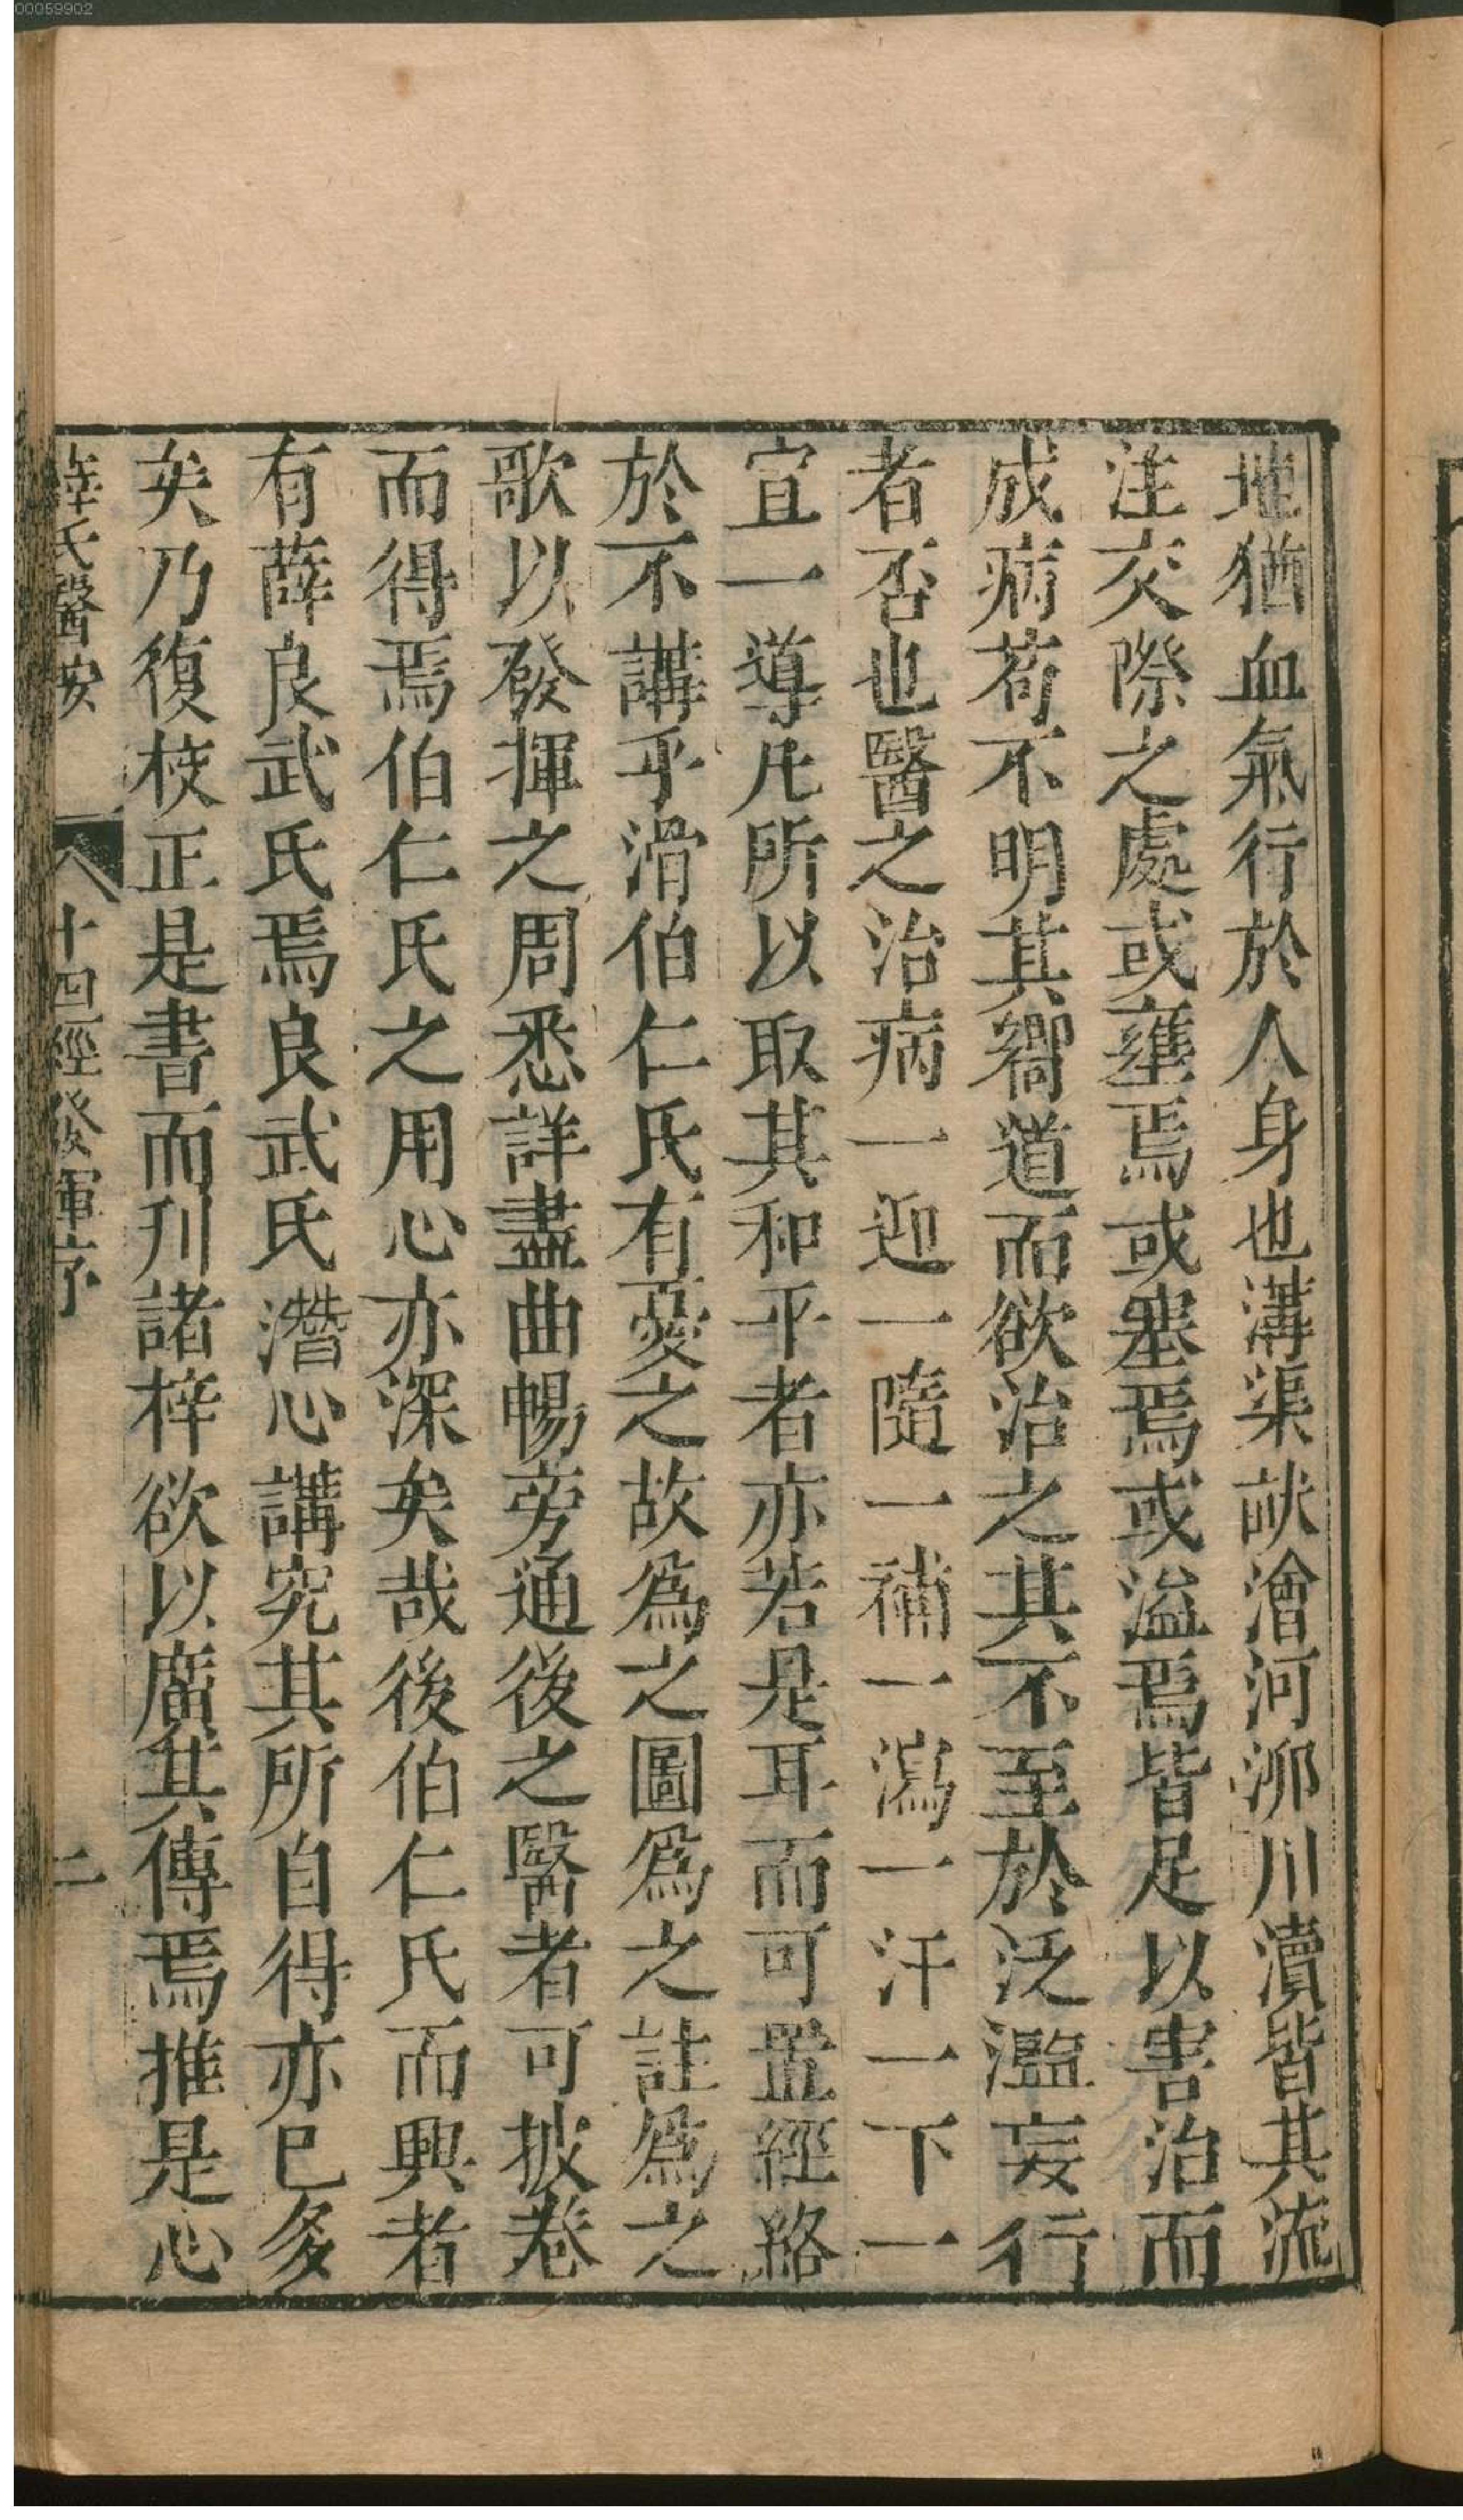 00059902
地猶血氣行於人身也溝渠畎澮河泖川瀆皆其流
注交際之處或壅焉或塞焉或溢焉皆足以害治而
成病苟不明其嚮道而欲治之其不至於泛濫妄行
者否也醫之治病一迎一隨一補一瀉一汗一下一
宣一導凡所以取其和平者亦若是耳而可置經絡
於不講乎滑伯仁氏有憂之故爲之圖爲之註爲之
歌以發揮之周悉詳盡曲暢旁通後之醫者可披卷
而得焉伯仁氏之用心亦深矣哉後伯仁氏而興者
有薛良武氏焉良武氏潛心講究其所自得亦已多
矣乃復校正是書而刋諸梓欲以廣其傳焉推是心
薛氏醫按 十四經發揮序 二